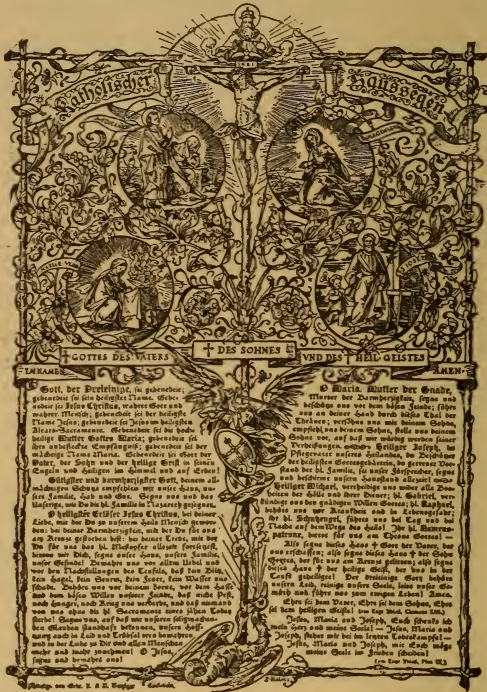 INRI
Katholischer Haussegen
IM NAMEN
† GOTTES DES VATERS
† DES SOHNES
VND DES † HEIL·GEISTES
AMEN·
Gott, der Dreieinige, sei gebenedeit;
gebenedeit sei sein heiligster Name. Gebe-
nedeit sei Jesus Christus, wahrer Gott und
wahrer Mensch; gebenedeit sei der heiligste
Name Jesus; gebenedeit sei Jesus im heiligsten
Altars-Sacramente. Gebenedeit sei die hoch-
heilige Mutter Gottes Maria; gebenedeit sei
ihre unbefleckte Empfängniß; gebenedeit sei der
Name Maria. Gebenedeit sei Gott der
Vater, der Sohn und der heilige Geist in seinen
Engeln und Heiligen im Himmel und auf Erden!
Gütigster und barmherzigster Gott, deinem all-
mächtigen Schutze empfehlen wir unser Haus, un-
sere Familie, Hab und Gut. Segne uns und das
Unserige, wie Du die hl. Familie in Nazareth gesegnet.
O heiligster Erlöser Jesus Christus, bei deiner
Liebe, mit der Du zu unserem Heile Mensch gewor-
den; bei deiner Barmherzigkeit, mit der Du für uns
am Kreuz gestorben bist; bei deiner Treue, mit der
Du für uns das hl. Meßopfer allezeit fortsetzest,
bitten wir Dich, segne unser Haus, unsere Familie,
unser Gesinde! Bewahre uns vor allem Uebel und
vor den Nachstellungen des Teufels, daß kein Blitz,
kein Hagel, kein Sturm, kein Feuer, kein Wasser uns
schade. Behüte uns vor deinem Zorne, vor dem Hasse
und dem bösen Willen unserer Feinde, daß nicht Pest,
noch Hunger, noch Krieg uns verderbe, und daß niemand
von uns ohne die hl. Sacramente eines jähen Todes
sterbe! Segne uns, auf daß wir unseren seligmachen-
den Glauben standhaft bekennen, unsere Hoff-
nung auch in Leid und Trübsal treu bewahren
und in der Liebe zu Dir und allen Menschen
mehr und mehr zunehmen! O Jesus,
segne und bewahre uns!
O Maria, Mutter der Gnade,
Mutter der Barmherzigkeit, segne und
beschütze uns vor dem bösen Feinde; führe
uns an deiner Hand durch dieses Thal der
Thränen; versöhne uns mit deinem Sohne,
empfiehl uns deinem Sohne, stelle uns deinem
Sohne vor, auf daß wir würdig werden seiner
Verheißungen. Heiliger Joseph, du
Pflegevater unseres Heilandes, du Beschützer
der heiligsten Gottesgebärerin, du getreuer Vor-
stand der hl. Familie, sei unser Fürsprecher, segne
und beschirme unsern Hausstand allezeit!
Heiliger Michael, vertheidige uns wider alle Bos-
heiten der Hölle und ihrer Diener; hl. Gabriel, ver-
kündige uns den gnädigen Willen Gottes; hl. Raphael,
behüte uns vor Krankheit und in Lebensgefahr;
ihr hl. Schutzengel, führet uns bei Tag und bei
Nacht auf dem Wege des Heils! Ihr hl. Namens-
patrone, betet für uns am Throne Gottes!
Also segne dieses Haus † Gott der Vater, der
uns erschaffen; also segne dieses Haus † der Sohn
Gottes, der für uns am Kreuz gelitten; also segne
dieses Haus † der heilige Geist, der uns in der
Taufe geheiligt! Der dreieinige Gott behüte
unsern Leib, reinige unsere Seele, leite unser Ge-
müth und führe uns zum ewigen Leben! Amen.
Ehre sei dem Vater, Ehre sei dem Sohne, Ehre
sei dem heiligen Geiste!
Jesus, Maria und Joseph, Euch schenke ich
mein Herz und meine Seele! Jesus, Maria und
Joseph, stehet mir bei im letzten Todeskampf!
Jesus, Maria und Joseph, mit Euch möge
meine Seele im Frieden scheiden!